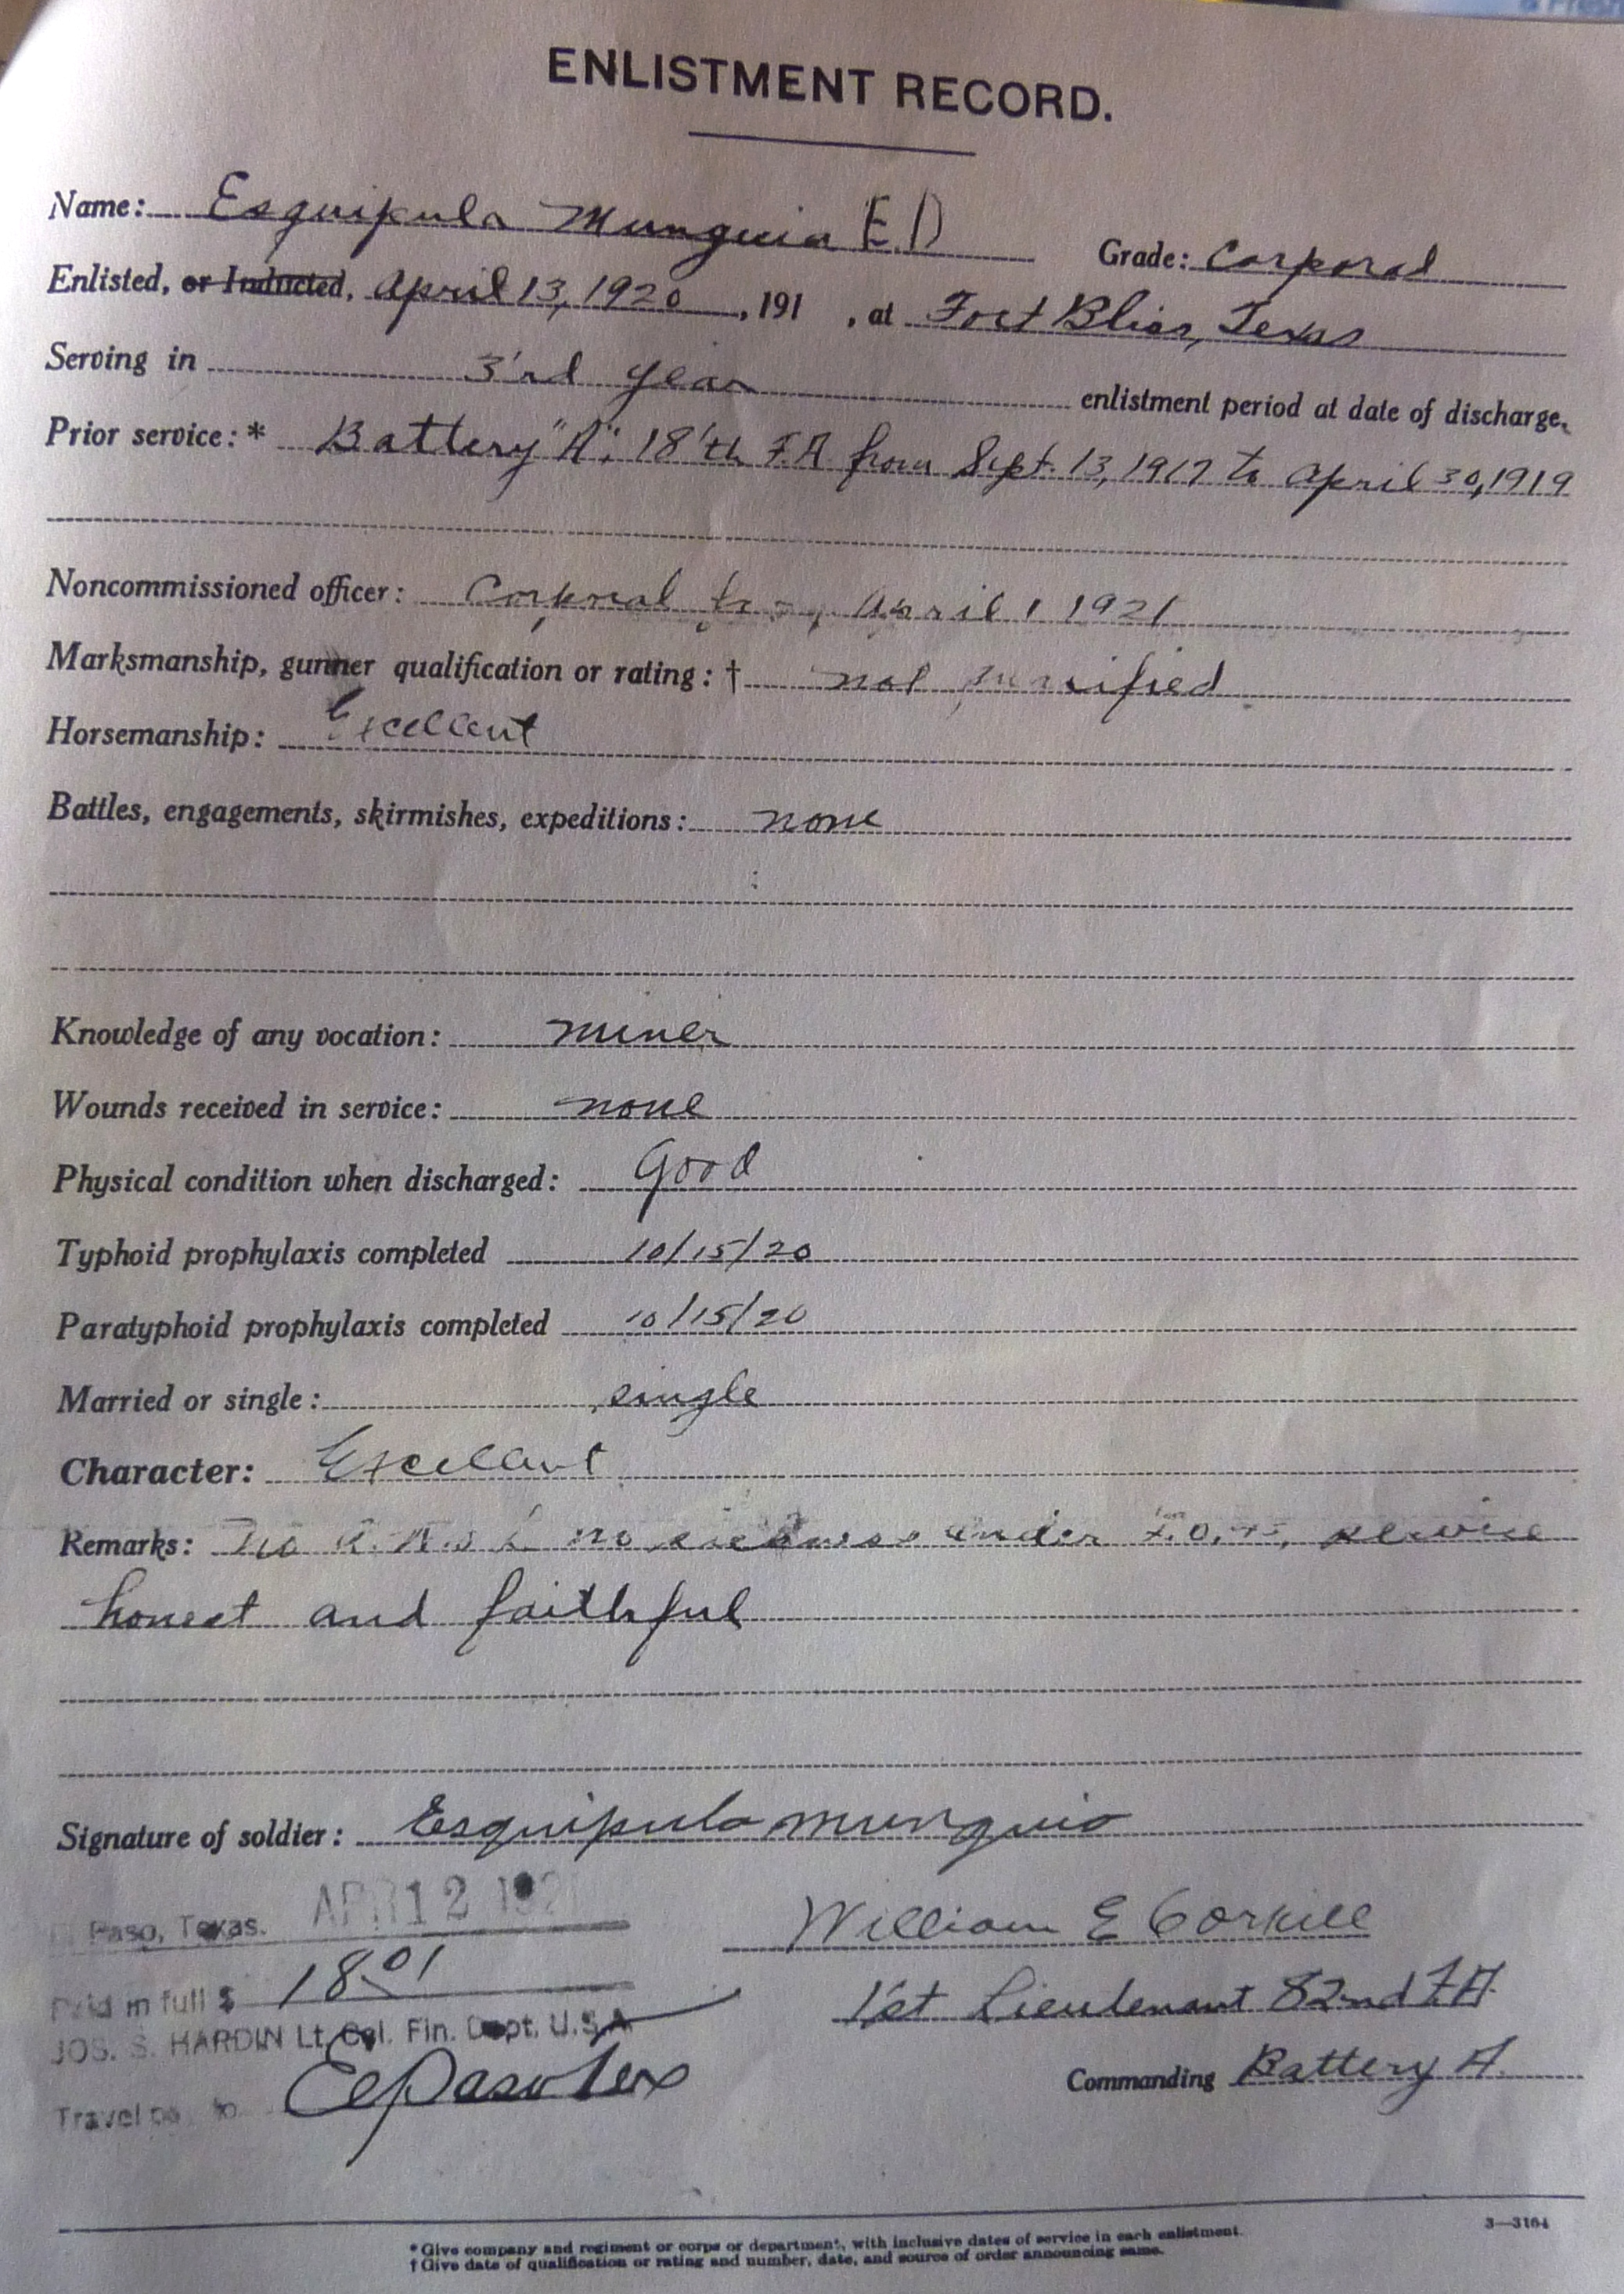 ENLISTMENT RECORD.
Name: Esquipula Munguia E.D
Grade: Corporal
Enlisted, or Inducted, April 13, 1920, 191 , at Fort Bliss, Texas
Serving in 3'rd year enlistment period at date of discharge.
Prior service:* Battery "A", 18'th F.A. from Sept. 13, 1917 to April 30, 1919
Noncommissioned officer: Corporal April 1 1921
Marksmanship, gunner qualification or rating:† not
Horsemanship: Excellent
Battles, engagements, skirmishes, expeditions: none
Knowledge of any vocation: miner
Wounds received in service: none
Physical condition when discharged: Good
Typhoid prophylaxis completed 10/15/20
Paratyphoid prophylaxis completed 10/15/20
Married or single: single
Character: Excellent
Remarks: No no under service
honest and faithful
Signature of soldier: Esquipula Munguia
Paso, Texas. APR 12 192
William E Corkill
Paid in full $ 18.01
1'st Lieutenant 82nd F.A.
JOS. S. HARDIN Lt. Col. Fin. Dept. U.S.A.
Commanding Battery A.
Travel to El Paso Tex
3—3164
* Give company and regiment or corps or department, with inclusive dates of service in each enlistment.
† Give date of qualification or rating and number, date, and source of order announcing same.